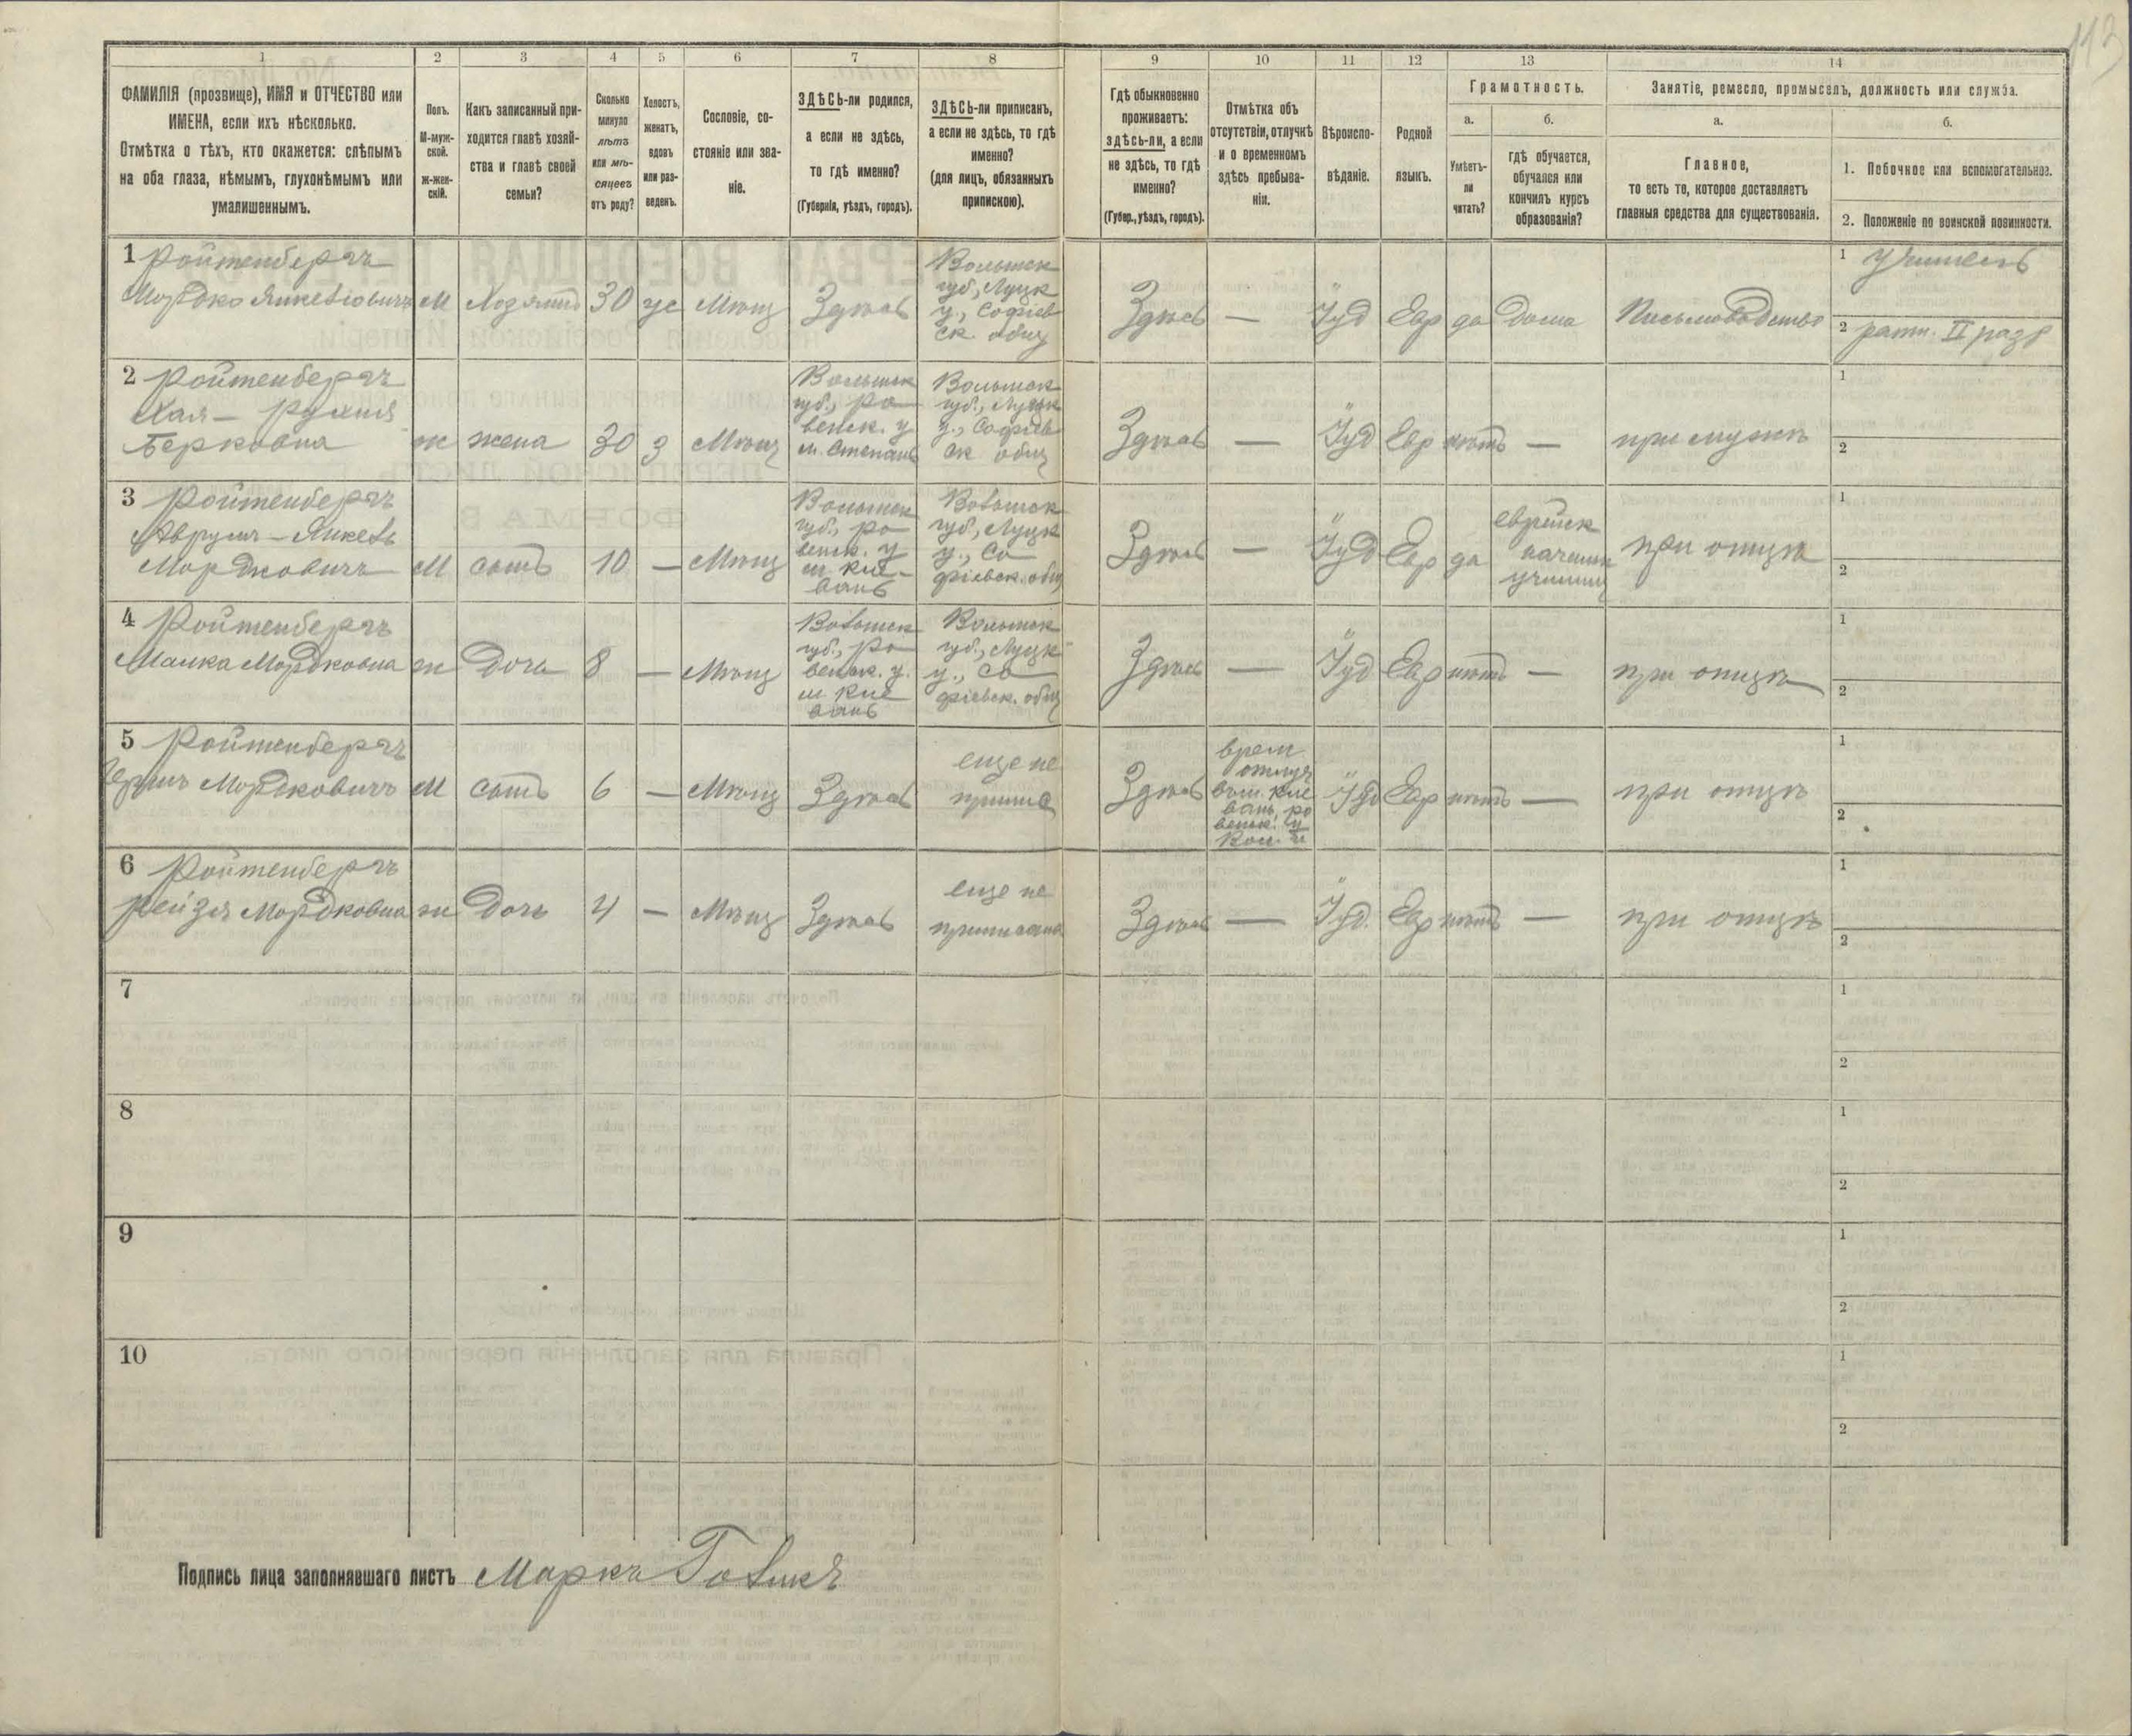 113
1
2
3
4
5
6
7
8
ФАМИЛІЯ (прозвище), ИМЯ и ОТЧЕСТВО или
ИМЕНА, если ихъ нѣсколько.
Отмѣтка о тѣхъ, кто окажется: слѣпымъ
на оба глаза, нѣмымъ, глухонѣмымъ или
умалишеннымъ.
Полъ.
М-муж-
ской.
ж-жен-
скій.
Какъ записанный при-
ходится главѣ хозяй-
ства и главѣ своей
семьи?
Сколько
минуло
лѣтъ
или мѣ-
сяцевъ
отъ роду?
Холостъ,
женатъ,
вдовъ
или раз-
веденъ.
Сословіе, со-
стояніе или зва-
ніе.
ЗДѢСЬ-ли родился,
а если не здѣсь,
то гдѣ именно?
(Губернія, уѣздъ, городъ).
ЗДѢСЬ-ли приписанъ,
а если не здѣсь, то гдѣ
именно?
(для лицъ, обязанныхъ
припискою).
9
10
11
12
13
14
Гдѣ обыкновенно
проживаетъ:
здѣсь-ли, а если
не здѣсь, то гдѣ
именно?
(Губер., уѣздъ, городъ).
Отмѣтка объ
отсутствіи, отлучкѣ
и о временномъ
здѣсь пребыва-
ніи.
Вѣроиспо-
вѣданіе.
Родной
языкъ.
Грамотность.
а.
Умѣетъ-
ли
читать?
б.
гдѣ обучается,
обучался или
кончилъ курсъ
образованія?
Занятіе, ремесло, промыселъ, должность или служба.
а.
Главное,
то есть то, которое доставляетъ
главныя средства для существованія.
б.
1. Побочное или вспомогательное.
2. Положеніе по воинской повинности.
1 Ройтенбергъ
Мордко Янкеліовичъ
М
Хозяинъ
30
Мѣщ
Здѣсь
Волынск
губ., Луцк
у., Софіев
ск. общ
Здѣсь
—
Іуд
Евр
да
Дома
Письмоводство
1 Учитель
2 ратн. II разр
2 Ройтенбергъ
Хая-Рухля
Берковна
ж
жена
30
з
Мѣщ
Волынск
губ., Ро
венск. у
м. Степань
Волынск
губ., Луцк
у., Софіев
ск общ
Здѣсь
—
Іуд
Евр
нѣтъ
—
при мужѣ
1
2
3 Ройтенбергъ
Аврумъ-Янкель
Мордковичъ
М
сынъ
10
—
Мѣщ
Волынск
губ., Ро
венск. у
м. Кле-
вань
Волынск
губ., Луцк
у., Со
фіевск. общ
Здѣсь
—
Іуд
Евр
да
еврейск
начальн
училищ
при отцѣ
1
2
4 Ройтенбергъ
Малка Мордковна
ж
Дочь
8
—
Мѣщ
Волынск
губ., Ро
венск. у.
м Кле
вань
Волынск
губ., Луцк
у., Со
фіевск. общ
Здѣсь
—
Іуд
Евр
нѣтъ
—
при отцѣ
1
2
5 Ройтенбергъ
Мордковичъ
М
сынъ
6
—
Мѣщ
Здѣсь
еще не
Здѣсь
врем
отлуч
въ м. Кле
вань, Ро
венск. у
Вол. г
Іуд
Евр
нѣтъ
—
при отцѣ
1
2
6 Ройтенбергъ
Рейзя Мордковна
ж
Дочь
4
—
Мѣщ
Здѣсь
еще не
приписана
Здѣсь
—
Іуд.
Евр
нѣтъ
—
при отцѣ
1
2
7
1
2
8
1
2
9
1
2
10
1
2
Подпись лица заполнявшаго листъ Маркъ